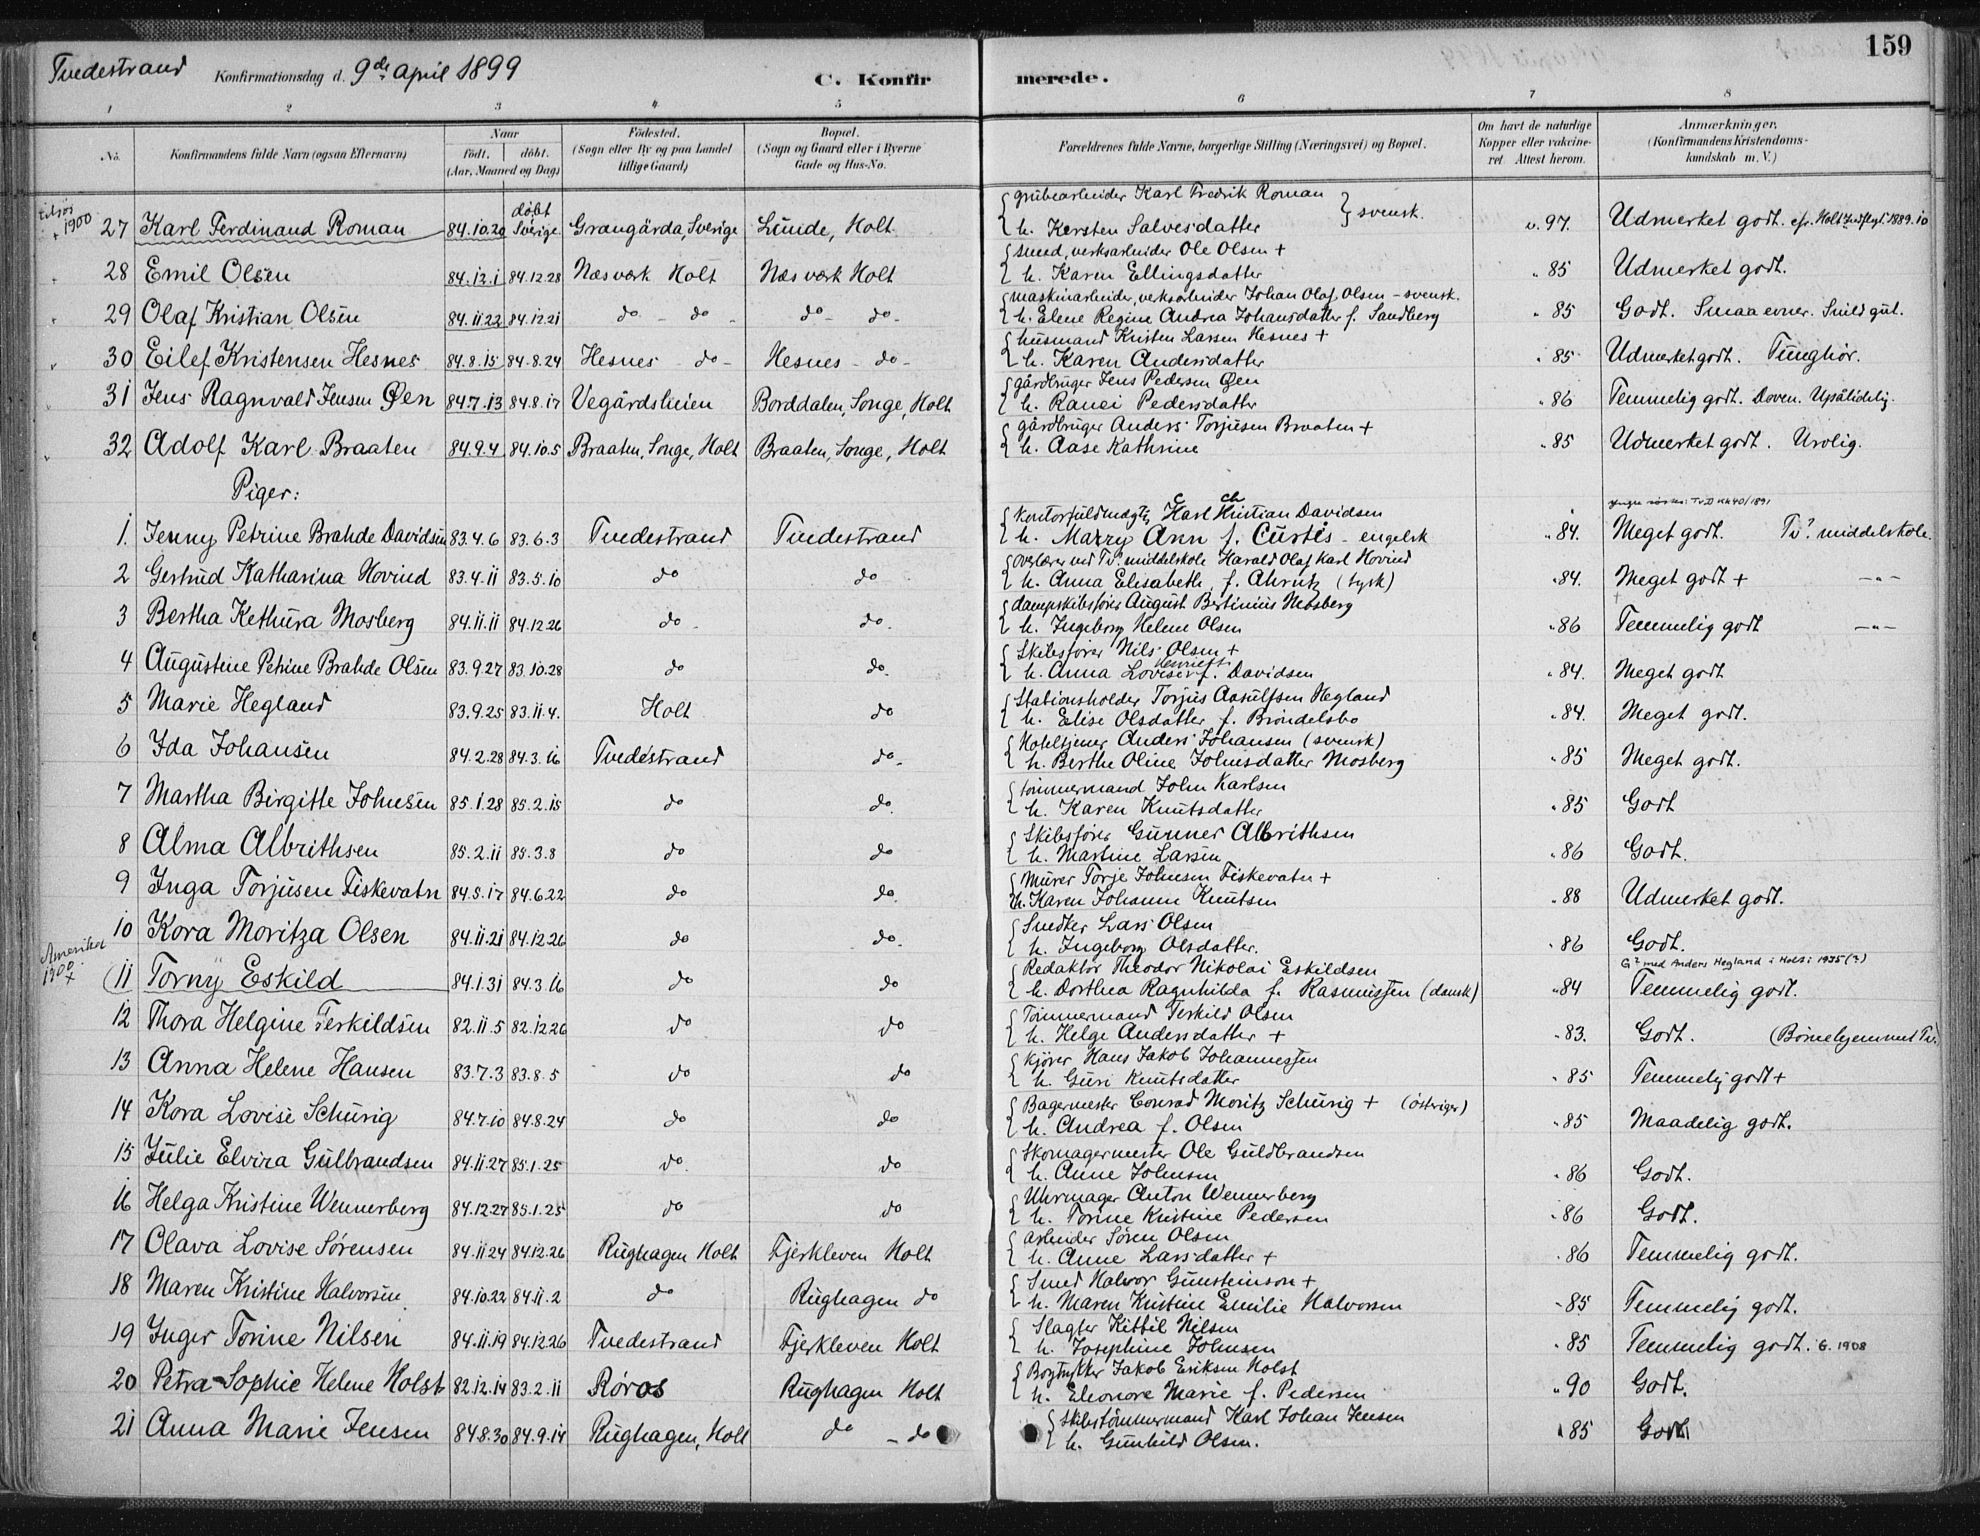 159
Tvedestrand Konfirmationsdag d. 9de april 1899 C. Konfirmerede.
1 2 3 4 5 6 7 8
No. Konfirmandens fulde Navn (ogsaa Efternavn) Naar födt. döbt. (Aar, Maaned og Dag) Födested. (Sogn eller By og paa Landet tillige Gaard) Bopæl. (Sogn og Gaard eller i Byerne Gade og Hus-No. Forældrenes fulde Navne, borgerlige Stilling (Næringsvei) og Bopæl. Om havt de naturlige Kopper eller vakcineret. Attest herom. Anmærkninger. (Konfirmandens Kristendomskundskab m. V.)
1900 27 Karl Ferdinand Roman 84.10.20 döbt Sverige Grangärda, Sverige Lunde, Holt grubearbeider Karl Fredrik Roman
h. Kersten Salvesdatter } svensk. v. 97. Udmerket godt.
28 Emil Olsen 84.12.1 84.12.28 Næsværk Holt Næsværk Holt smed, verksarbeider Ole Olsen +
h. Karen Ellingsdatter " 85 Udmerket godt.
29 Olaf Kristian Olsen 84.11.22 84.12.21 do - do - do - do - maskinarbeider, verksarbeider Johan Olaf Olsen - svensk.
h. Elene Regine Andrea Johansdatter f. Sandberg " 85 Godt. Smaa evner. Snild gut.
30 Eilef Kristensen Hesnes 84.8.15 84.8.24 Hesnes - do - Hesnes - do - husmand Kristen Larsen Hesnes +
h. Karen Andersdatter " 85 Udmerket godt. Tunghør.
31 Jens Ragnvald Jensen Øen 84.7.13 84.8.17 Vegårdsheien Borddalen, Songe, Holt gårdbruger Jens Pedersen Øen
h. Ranei Pedersdatter " 86 Temmelig godt. Doven. Upålidelig.
32 Adolf Karl Braaten 84.9.4 84.10.5 Braaten, Songe, Holt Braaten, Songe, Holt gårdbruger Anders Torjusen Braaten +
h. Aase Kathrine " 85 Udmerket godt. Urolig.
Piger:
1. Jenny Petrine Brahde Davidsen 83.4.6 83.6.3 Tvedestrand Tvedestrand Karl Christian Davidsen
h. Marry Ann f. Curtis - engelsk " 84. Meget godt. Tv. middelskole.
2 Gertrud Katharina Hovind 83.4.11 83.5.10 do do overlærer ved Tv. middelskole Harald Olaf Karl Hovind
h. Anna Elisabeth f. Ahrntz (tysk) " 84. Meget godt + - " -
3 Bertha Kethura Mosberg 84.11.11 84.12.26 do do. dampskibsfører August Bertinius Mosberg
h. Ingeborg Helene Olsen " 86 Temmelig godt - " -
4 Augustine Petrine Brahde Olsen 83.9.27 83.10.28 do do. Skibsfører Nils Olsen +
h. Anna Lovise Henriette f. Davidsen " 84. Meget godt
5 Marie Hegland 83.9.25 83.11.4. Holt do Stationsholder Torjus Aasulfsen Hegland
h. Elise Olsdatter f. Bröndelsbo " 84. Meget godt.
6 Ida Johansen 84.2.28 84.3.16 Tvedestrand do. Hoteltjener Anders Johansen (svensk)
h. Berthe Oline Johnsdatter Mosberg " 85 Meget godt.
7 Martha Birgitte Johnsen 85.1.28 85.2.15 do do. tömmermand John Karlsen
h. Karen Knutsdatter " 85 Godt
8 Alma Albrithsen 85.2.11 85.3.8 do do Skibsfører Gunner Albrithsen
h. Martine Larsen " 86 Godt.
9 Inga Torjusen Fiskevatn 84.5.17 84.6.22 do do. Murer Torje Johnsen Fiskevatn +
h. Karen Johanne Knutsen " 88 Udmerket godt.
10 Kora Moritza Olsen 84.11.21 84.12.26 do do. Snedker Lars Olsen
h. Ingeborg Olsdatter. " 86 Godt.
Amerika 1900 + 11 Torny Eskild 84.1.31 84.3.16 do do Redaktør Theodor Nikolai Eskildsen
h. Dorthea Ragnhilda f. Rasmussen (dansk) " 84 G. med Anders Hegland i Holt i 1935 (?)
Temmelig godt.
12 Thora Helgine Terkildsen 82.11.5 82.12.26 do do Tömmermand Terkild Olsen
h. Helge Andersdatter + " 83. Godt. (Børnehjemmet Tv.)
13 Anna Helene Hansen 83.7.3 83.8.5 do do kjører Hans Jakob Johannessen
h. Guri Knutsdatter " 85 Temmelig godt +
14 Kora Lovise Schurig 84.7.10 84.8.24 do do Bagermester Conrad Moritz Schurig + (östriger)
h. Andrea f. Olsen " 85 Maadelig godt.
15 Julie Elvira Gulbrandsen 84.11.27 85.1.25 do do Skomagermester Ole Guldbrandsen
h. Anne Johnsen " 86 Godt.
16 Helga Kristine Wennerberg 84.12.27 85.1.25 do do Uhrmager Anton Wennerberg
h. Torine Kristine Pedersen " 86 Godt.
17 Olava Lovise Sørensen 84.11.24 84.12.26 Rughagen Holt Fjerkleven Holt arbeider Søren Olsen
h. Anne Larsdatter + " 86 Temmelig godt.
18 Maren Kristine Halvorsen 84.10.22 84.11.2 do Rughagen do Smed Halvor Gunsteinson +
h. Maren Kristine Emilie Halvorsen " 85 Temmelig godt.
19 Inger Torine Nilsen 84.11.19 84.12.26 Tvedestrand Fjerkleven Holt Slagter Kittil Nilsen
h. Josephine Johnsen " 85 Temmelig godt. G. 1908
20 Petra Sophie Helene Holst 82.12.14 83.2.11 Röros Rughagen Holt Bogtrykker Jakob Eriksen Holst
h. Eleonore Marie f. Pedersen " 90 Godt.
21 Anna Marie Jensen 84.8.30 84.9.14 Rughagen, Holt do - do Skibstömmermand Karl Johan Jensen
h. Gunhild Olsen. " 85 Godt